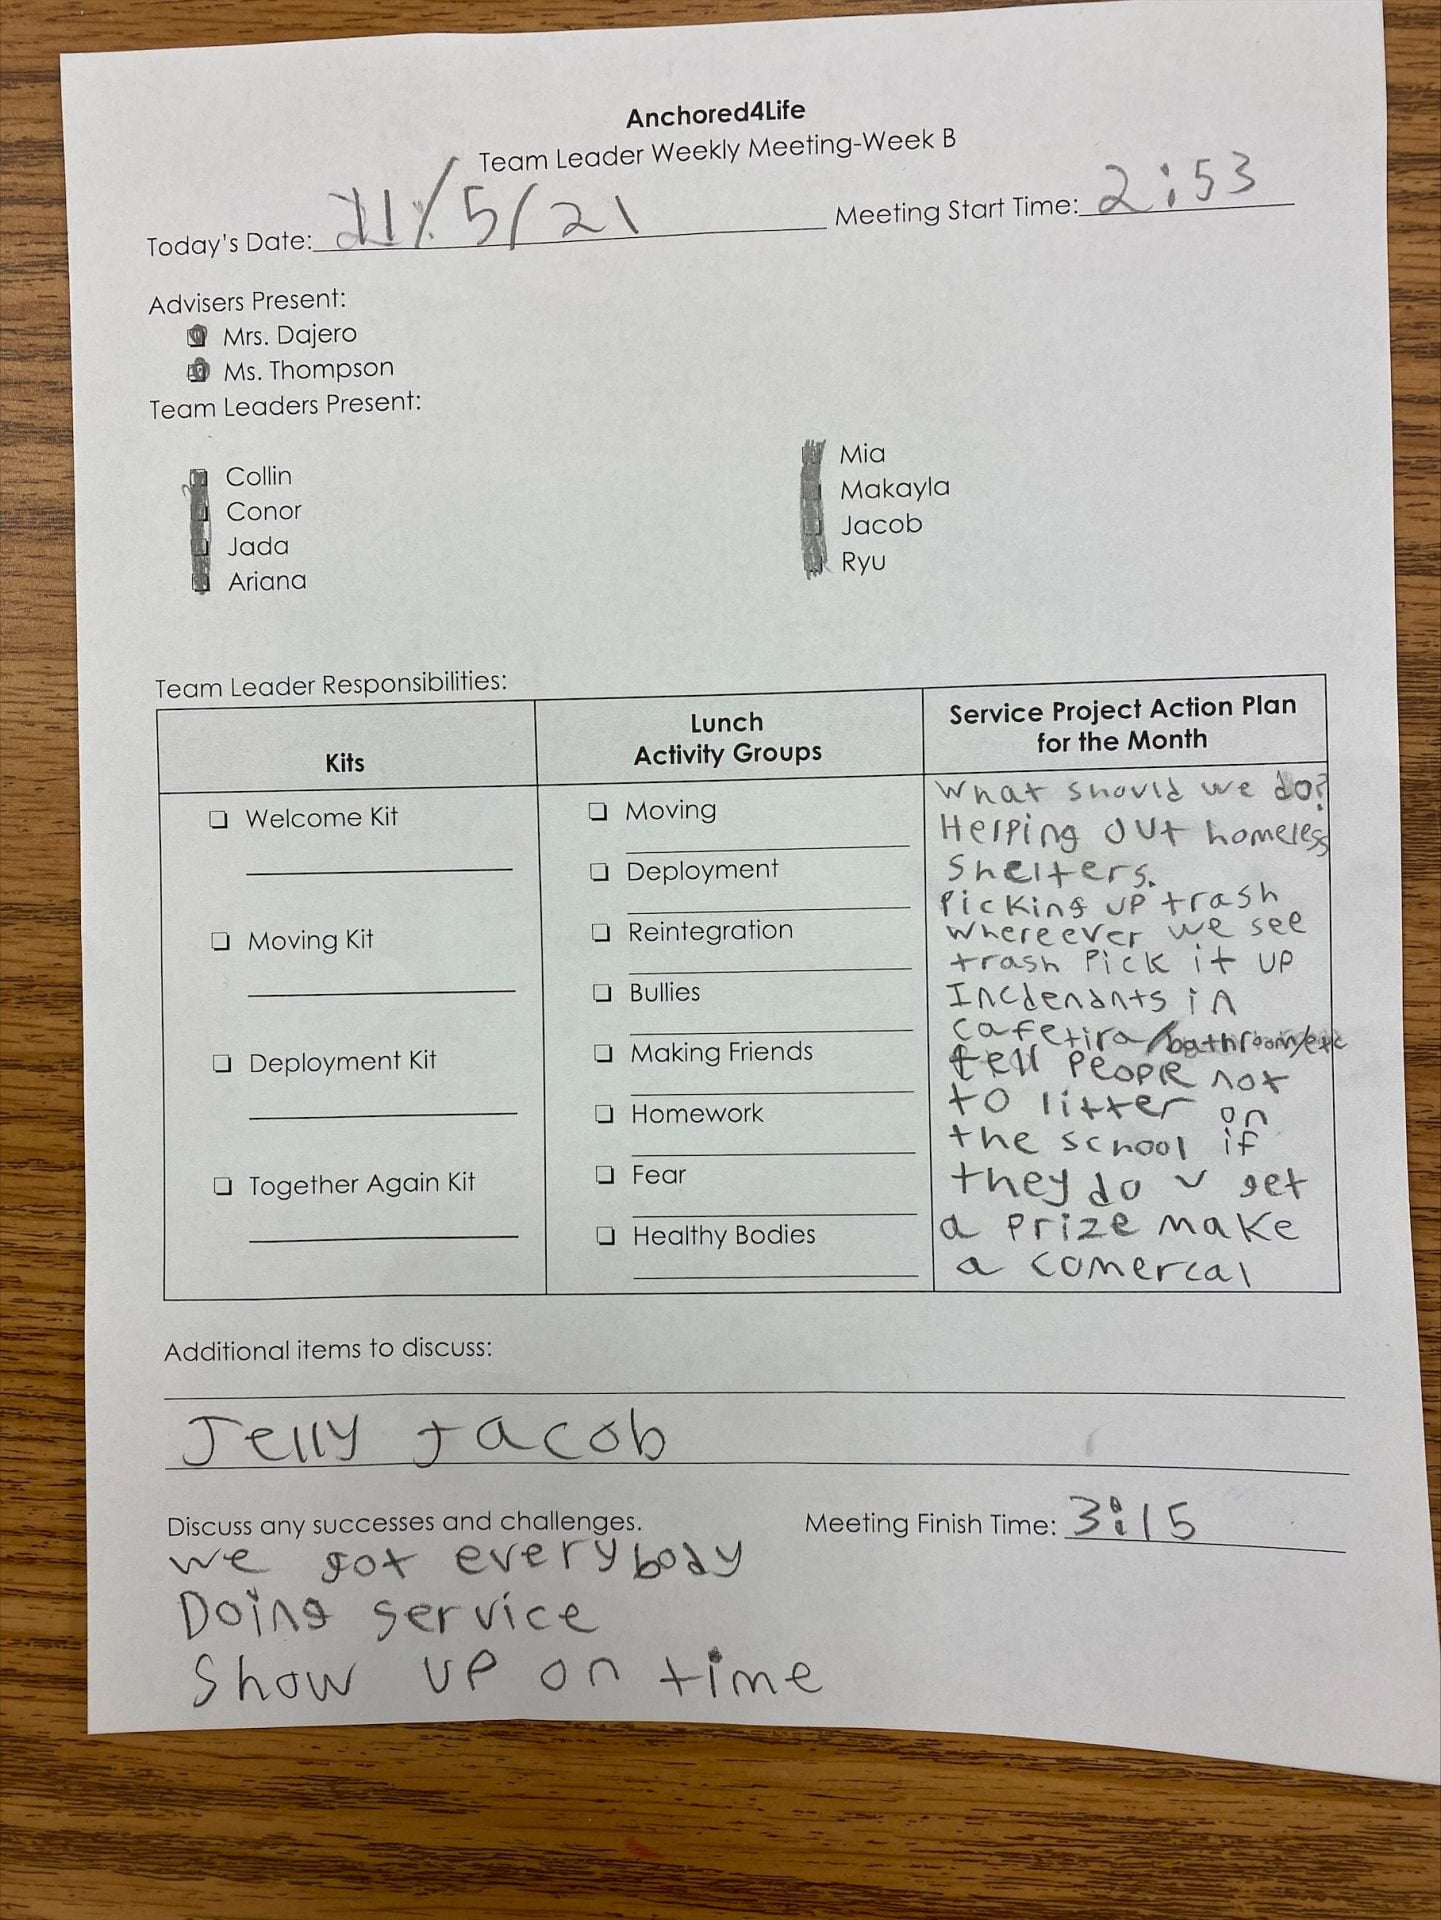 Anchored4Life
Team Leader Weekly Meeting-Week B
Today's Date: 11/5/21 Meeting Start Time: 2:53
Advisers Present:
Mrs. Dajero
Ms. Thompson
Team Leaders Present:
Collin
Conor
Jada
Ariana
Mia
Makayla
Jacob
Ryu
Team Leader Responsibilities:
Kits
Welcome Kit
Moving Kit
Deployment Kit
Together Again Kit
Lunch
Activity Groups
Moving
Deployment
Reintegration
Bullies
Making Friends
Homework
Fear
Healthy Bodies
Service Project Action Plan
for the Month
What should we do?
Helping out homeless
shelters.
Picking up trash
whereever we see
trash Pick it up
Incdenants in
cafetira/bathroom/etc
tell people not
to litter on
the school if
they do u get
a prize make
a comercal
Additional items to discuss:
Jelly Jacob
Discuss any successes and challenges. Meeting Finish Time: 3:15
we got everybody
Doing service
Show up on time